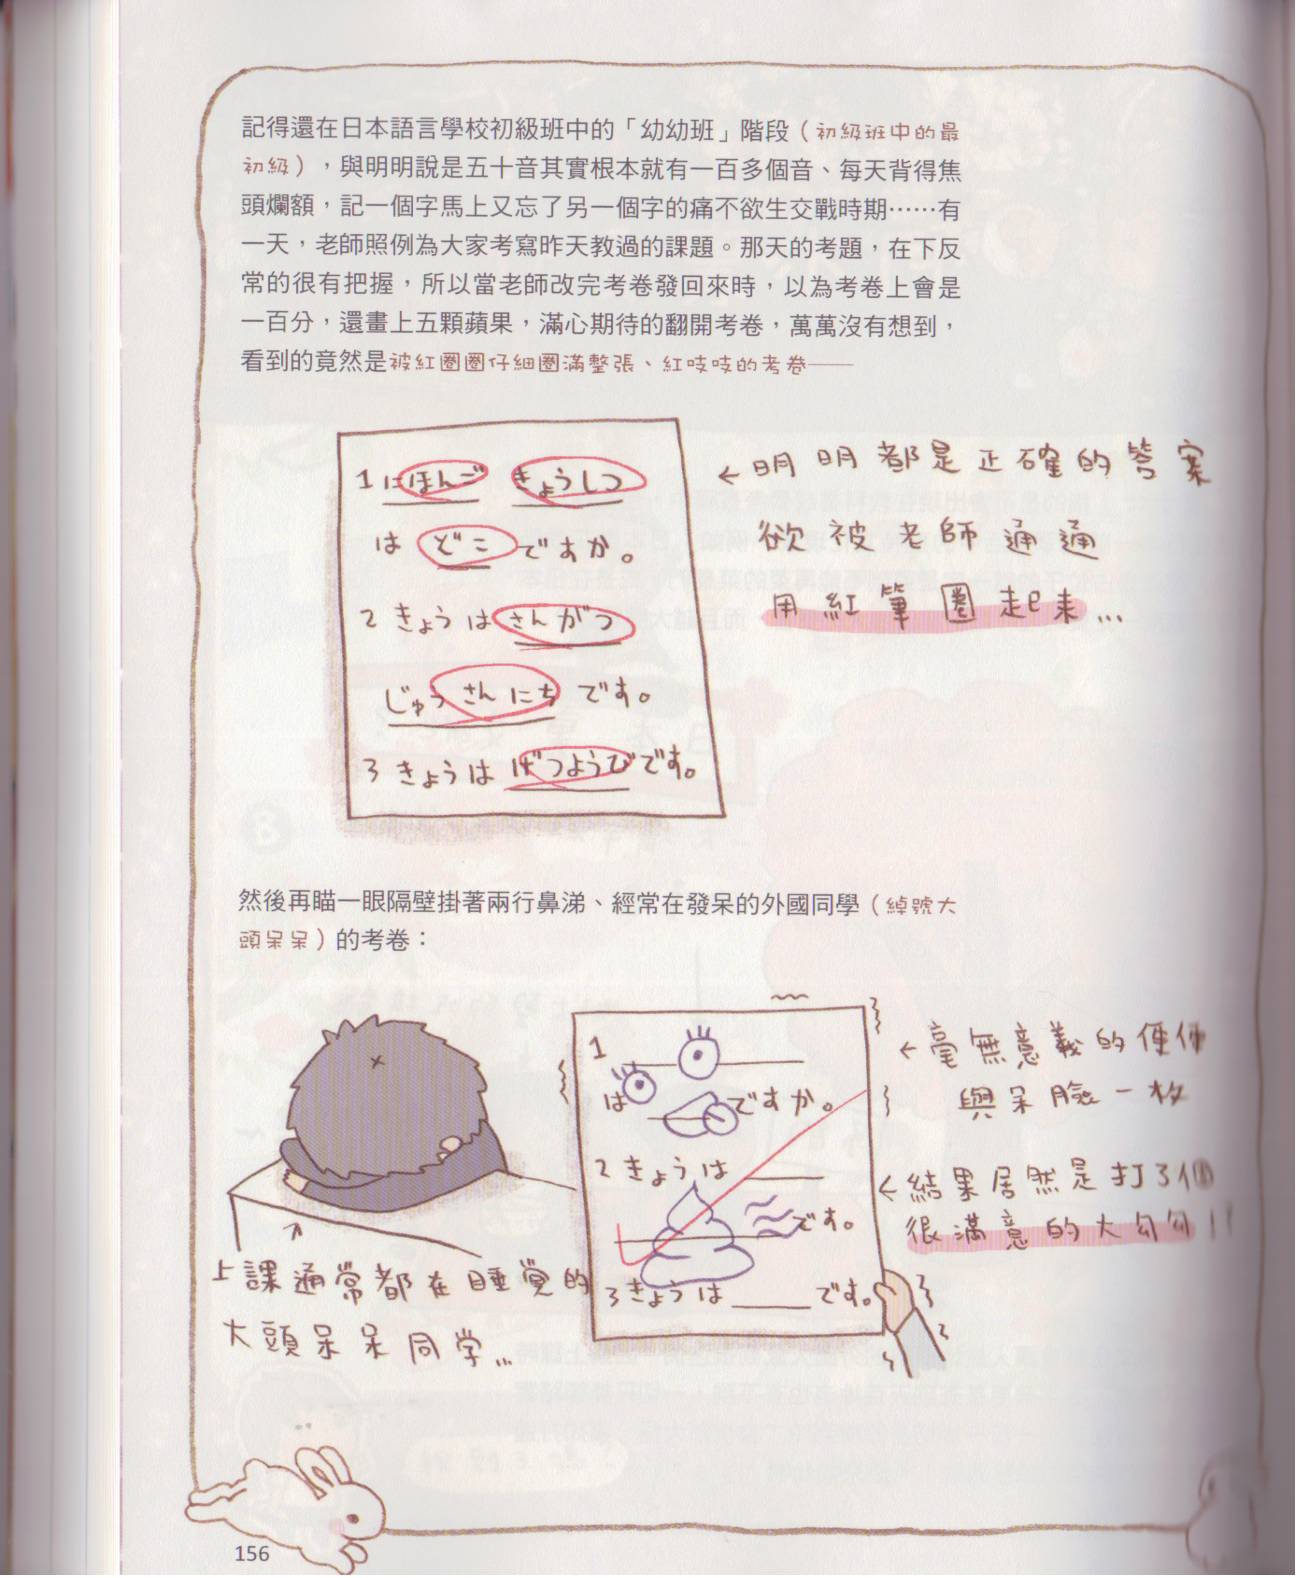 記得還在日本語言學校初級班中的「幼幼班」階段（初級班中的最
初級），與明明說是五十音其實根本就有一百多個音、每天背得焦
頭爛額，記一個字馬上又忘了另一個字的痛不欲生交戰時期……有
一天，老師照例為大家考寫昨天教過的課題。那天的考題，在下反
常的很有把握，所以當老師改完考卷發回來時，以為考卷上會是
一百分，還畫上五顆蘋果，滿心期待的翻開考卷，萬萬沒有想到，
看到的竟然是被紅圈圈仔細圈滿整張、紅吱吱的考卷——
1 にほんご きょうしつ
は どこ ですか。
2 きょうは さんがつ
じゅうさんにち です。
3 きょうは げつようび です。
←明明都是正確的答案
欲被老師通通
用紅筆圈起來…
然後再瞄一眼隔壁掛著兩行鼻涕、經常在發呆的外國同學（綽號大
頭呆呆）的考卷：
1
は ですか。
2 きょうは
です。
3 きょうは ____ です。
←毫無意義的便便
與呆臉一枚
←結果居然是打了個
很滿意的大勾勾！！
上課通常都在睡覺的
大頭呆呆同学…
156